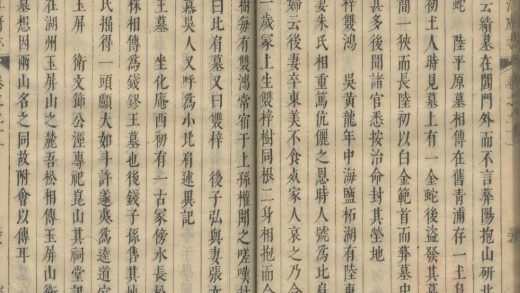 云績墓在閶門外而不言葬陽抱山研北
蛇 陸平原墓相傳在舊青浦存一土阜
初土人時見墓上有一金蛇後盜發其墓
間一狹而長陸初以白金範首而葬墓中
甚多後聞諸官悉按治命封其塋地
梓雙鴻 吳黃龍年中海鹽柘湖有陸東
妻朱氏相重篤伉儷之恩時人號為比肩
婦云後妻卒東美不食死家人哀之乃合
一歲冢上生雙梓樹同根二身相抱而合
樹每有雙鴻常宿于上孫權聞之嗟嘆封
曰比肩墓又曰雙梓 後子弘與妻張亦
愛吳人又呼為小比肩述異記
王墓 坐化庵西初有一古冢傍水長松
株相傳為錢鏐王墓也後錢子孫售其地
氏掘得一頭顱大如斗許遂夷為逵道宅
玉屏 衛文節公涇專祀崑山其祠堂記
在湖州玉屏山之麓吾松相傳玉屏山衛
墓想因兩山名之同故附會以傳耳